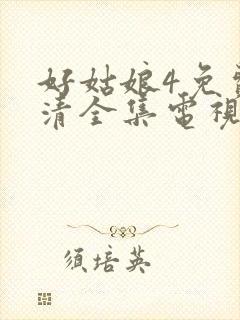 好姑娘4免
清全集電視
須培英